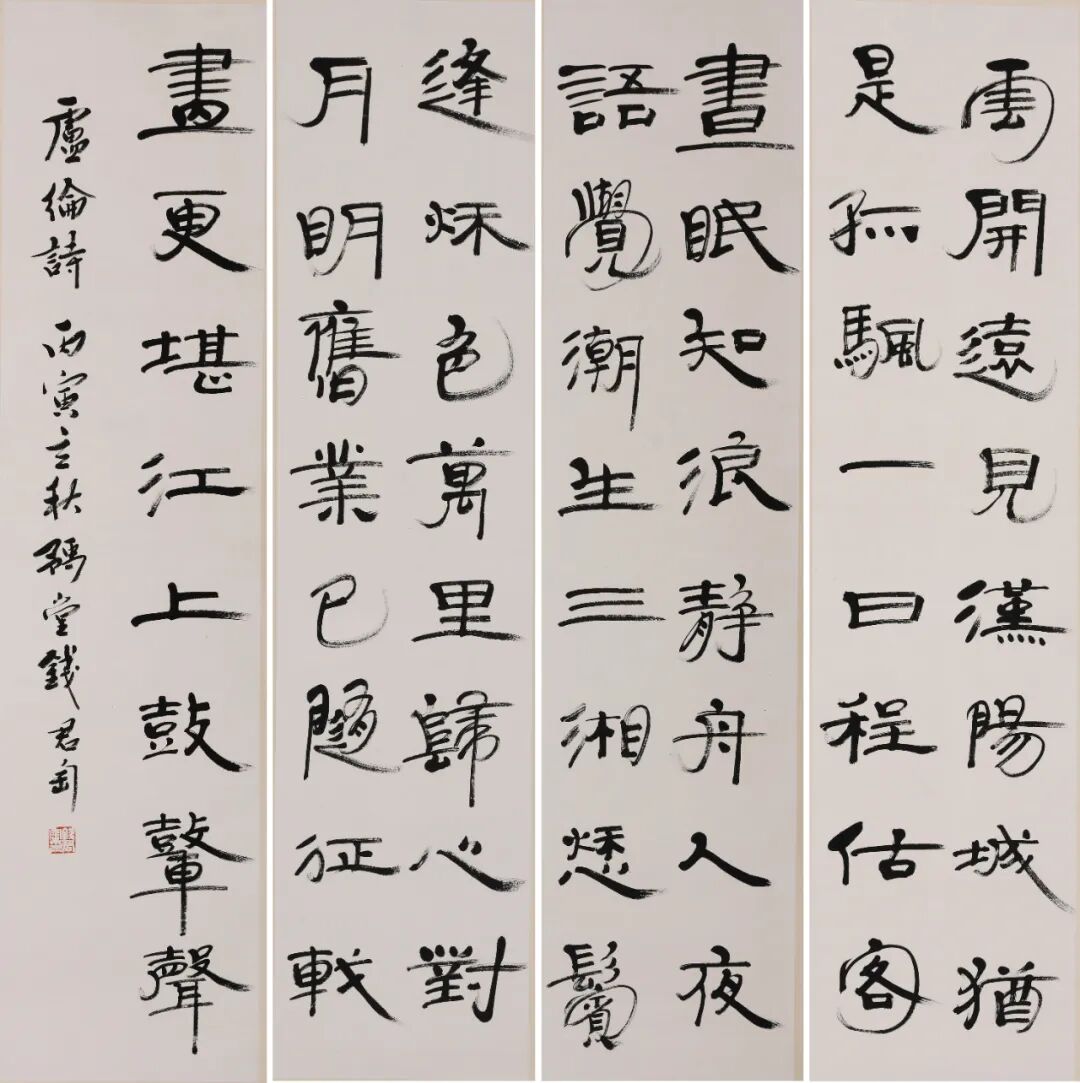 雲開遠見漢陽城猶
是孤颿一日程估客
晝眠知浪静舟人夜
語覺潮生三湘愁鬢
逢秌色萬里歸心對
月明舊業已隨征戰
盡更堪江上鼓鼙聲
盧綸詩 丙寅立秋豫堂錢君匋